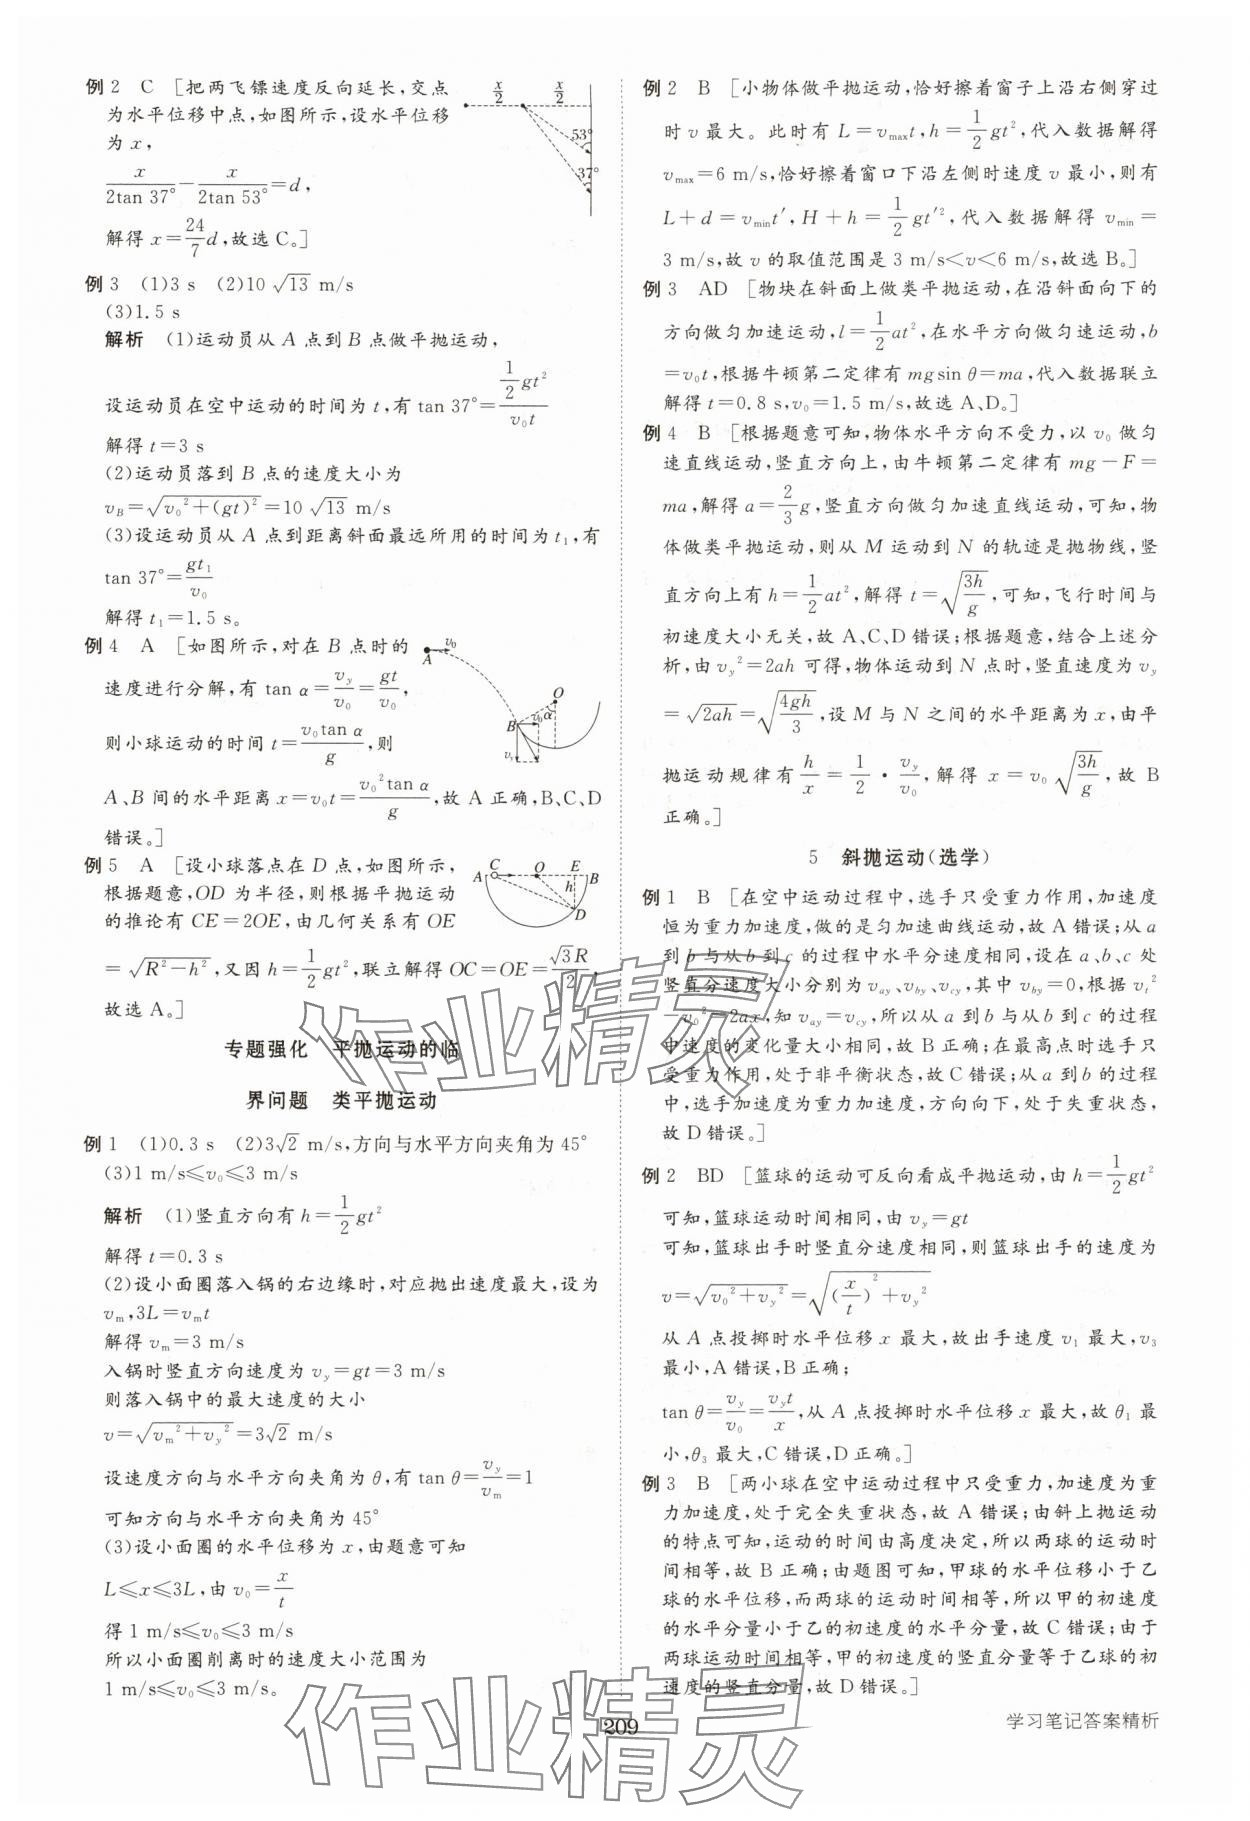 例2　C　[把两飞镖速度反向延长,交点
为水平位移中点,如图所示,设水平位移
为 x,
x/(2tan 37°)－x/(2tan 53°)＝d,
解得 x＝24/7 d,故选 C。]
x/2　x/2
53°
37°
例3　(1)3 s　(2)10√13 m/s
(3)1.5 s
解析　(1)运动员从 A 点到 B 点做平抛运动,
设运动员在空中运动的时间为 t,有 tan 37°＝(1/2 gt²)/(v₀t)
解得 t＝3 s
(2)运动员落到 B 点的速度大小为
v_B＝√(v₀²＋(gt)²)＝10√13 m/s
(3)设运动员从 A 点到距离斜面最远所用的时间为 t₁,有
tan 37°＝gt₁/v₀
解得 t₁＝1.5 s。
例4　A　[如图所示,对在 B 点时的
速度进行分解,有 tan α＝v_y/v₀＝gt/v₀,
则小球运动的时间 t＝v₀tan α/g,则
A、B 间的水平距离 x＝v₀t＝v₀²tan α/g,故 A 正确,B、C、D
错误。]
A　v₀　O　B　v₀　α　v_y
例5　A　[设小球落点在 D 点,如图所示,
根据题意,OD 为半径,则根据平抛运动
的推论有 CE＝2OE,由几何关系有 OE
＝√(R²－h²),又因 h＝1/2 gt²,联立解得 OC＝OE＝√3R/2,
故选 A。]
A　C　O　E　B　h　D
专题强化　平抛运动的临
界问题　类平抛运动
例1　(1)0.3 s　(2)3√2 m/s,方向与水平方向夹角为 45°
(3)1 m/s≤v₀≤3 m/s
解析　(1)竖直方向有 h＝1/2 gt²
解得 t＝0.3 s
(2)设小面圈落入锅的右边缘时,对应抛出速度最大,设为
v_m,3L＝v_m t
解得 v_m＝3 m/s
入锅时竖直方向速度为 v_y＝gt＝3 m/s
则落入锅中的最大速度的大小
v＝√(v_m²＋v_y²)＝3√2 m/s
设速度方向与水平方向夹角为 θ,有 tan θ＝v_y/v_m＝1
可知方向与水平方向夹角为 45°
(3)设小面圈的水平位移为 x,由题意可知
L≤x≤3L,由 v₀＝x/t
得 1 m/s≤v₀≤3 m/s
所以小面圈削离时的速度大小范围为
1 m/s≤v₀≤3 m/s。
例2　B　[小物体做平抛运动,恰好擦着窗子上沿右侧穿过
时 v 最大。此时有 L＝v_max t,h＝1/2 gt²,代入数据解得
v_max＝6 m/s,恰好擦着窗口下沿左侧时速度 v 最小,则有
L＋d＝v_min t′,H＋h＝1/2 gt′²,代入数据解得 v_min＝
3 m/s,故 v 的取值范围是 3 m/s<v<6 m/s,故选 B。]
例3　AD　[物块在斜面上做类平抛运动,在沿斜面向下的
方向做匀加速运动,l＝1/2 at²,在水平方向做匀速运动,b
＝v₀t,根据牛顿第二定律有 mgsin θ＝ma,代入数据联立
解得 t＝0.8 s,v₀＝1.5 m/s,故选 A、D。]
例4　B　[根据题意可知,物体水平方向不受力,以 v₀ 做匀
速直线运动,竖直方向上,由牛顿第二定律有 mg－F＝
ma,解得 a＝2/3 g,竖直方向做匀加速直线运动,可知,物
体做类平抛运动,则从 M 运动到 N 的轨迹是抛物线,竖
直方向上有 h＝1/2 at²,解得 t＝√(3h/g),可知,飞行时间与
初速度大小无关,故 A、C、D 错误;根据题意,结合上述分
析,由 v_y²＝2ah 可得,物体运动到 N 点时,竖直速度为 v_y
＝√(2ah)＝√(4gh/3),设 M 与 N 之间的水平距离为 x,由平
抛运动规律有 h/x＝1/2·v_y/v₀,解得 x＝v₀√(3h/g),故 B
正确。]
5　斜抛运动(选学)
例1　B　[在空中运动过程中,选手只受重力作用,加速度
恒为重力加速度,做的是匀加速曲线运动,故 A 错误;从 a
到 b 与从 b 到 c 的过程中水平分速度相同,设在 a、b、c 处
竖直分速度大小分别为 v_ay、v_by、v_cy,其中 v_by＝0,根据 v_t²
－v₀²＝2ax,知 v_ay＝v_cy,所以从 a 到 b 与从 b 到 c 的过程
中速度的变化量大小相同,故 B 正确;在最高点时选手只
受重力作用,处于非平衡状态,故 C 错误;从 a 到 b 的过程
中,选手加速度为重力加速度,方向向下,处于失重状态,
故 D 错误。]
例2　BD　[篮球的运动可反向看成平抛运动,由 h＝1/2 gt²
可知,篮球运动时间相同,由 v_y＝gt
可知,篮球出手时竖直分速度相同,则篮球出手的速度为
v＝√(v₀²＋v_y²)＝√((x/t)²＋v_y²)
从 A 点投掷时水平位移 x 最大,故出手速度 v₁ 最大,v₃
最小,A 错误,B 正确;
tan θ＝v_y/v₀＝v_y t/x,从 A 点投掷时水平位移 x 最大,故 θ₁ 最
小,θ₃ 最大,C 错误,D 正确。]
例3　B　[两小球在空中运动过程中只受重力,加速度为重
力加速度,处于完全失重状态,故 A 错误;由斜上抛运动
的特点可知,运动的时间由高度决定,所以两球的运动时
间相等,故 B 正确;由题图可知,甲球的水平位移小于乙
球的水平位移,而两球的运动时间相等,所以甲的初速度
的水平分量小于乙的初速度的水平分量,故 C 错误;由于
两球运动时间相等,甲的初速度的竖直分量等于乙球的初
速度的竖直分量,故 D 错误。]
作业精灵
作业精灵
209
学习笔记答案精析